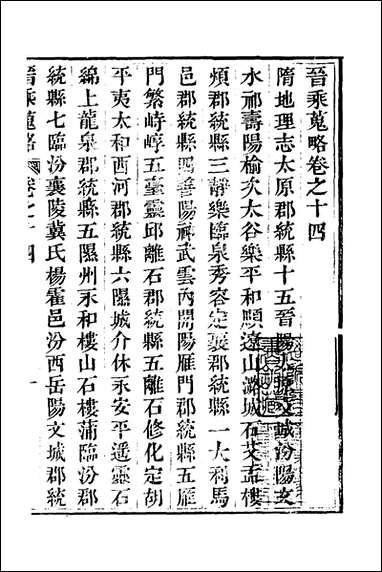 晉乘蒐略卷之十四
隋地理志太原郡統縣十五晉陽太原交城汾陽文
水祁壽陽榆次太谷樂平和順遼山潞城石艾盂樓
煩郡統縣三靜樂臨泉秀容定襄郡統縣一大利馬
邑郡統縣四善陽神武雲內開陽雁門郡統縣五雁
門繁峙崞五臺靈邱離石郡統縣五離石修化定胡
平夷太和西河郡統縣六隰城介休永安平遙靈石
綿上龍泉郡統縣五隰州永和樓山石樓蒲臨汾郡
統縣七臨汾襄陵冀氏楊霍邑汾西岳陽文城郡統
晉乘蒐略 卷之十四 一